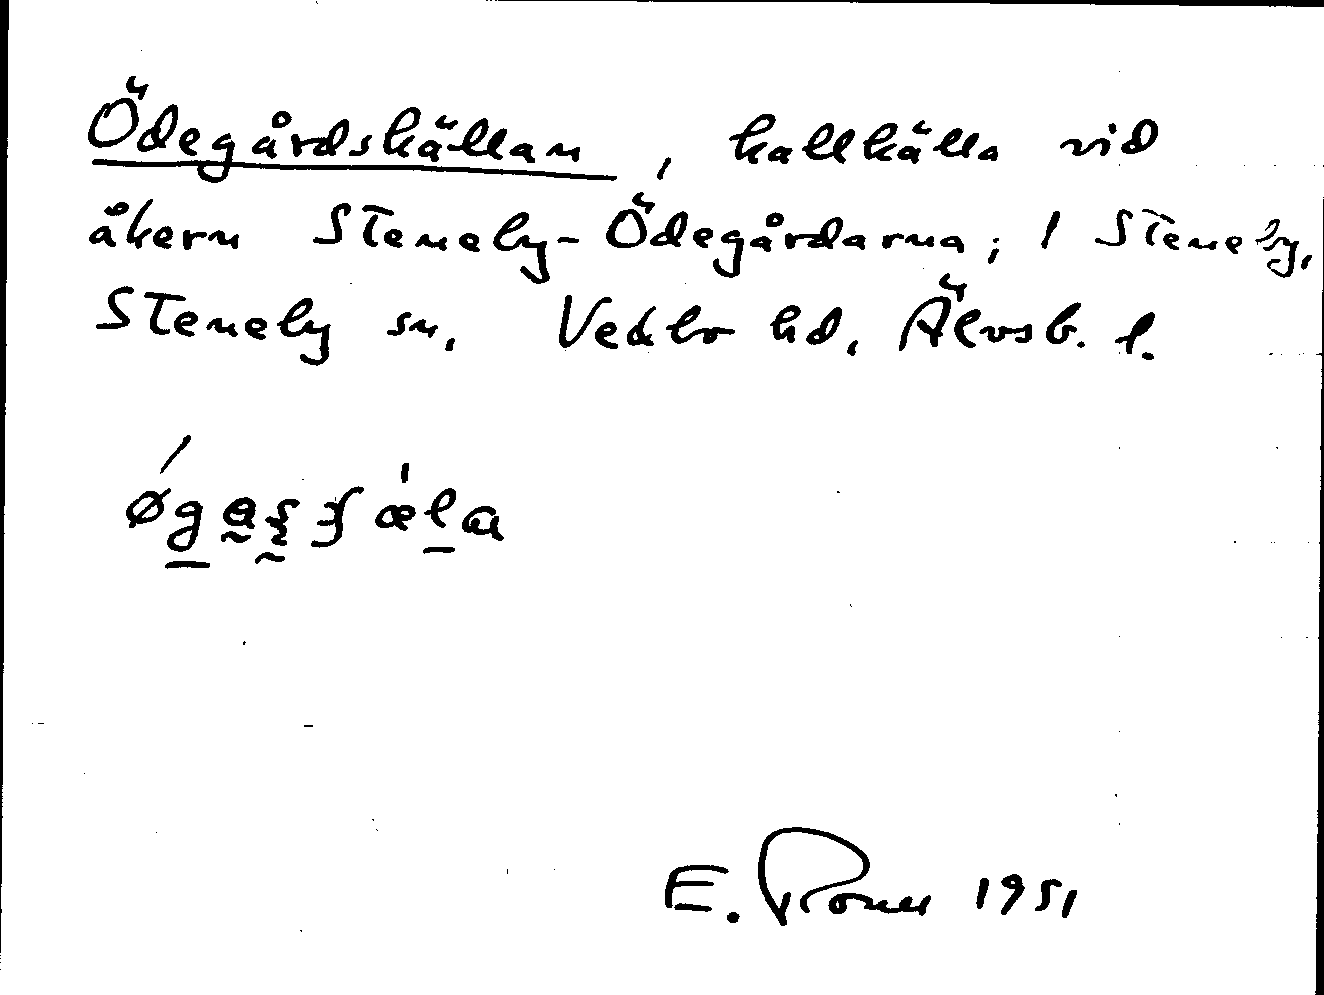 Ödegårdskällan, kallkälla vid
åkern Steneby-Ödegårdarna; / Steneby,
Steneby sn, Vedbo hd, Älvsb. l.
E. 1951